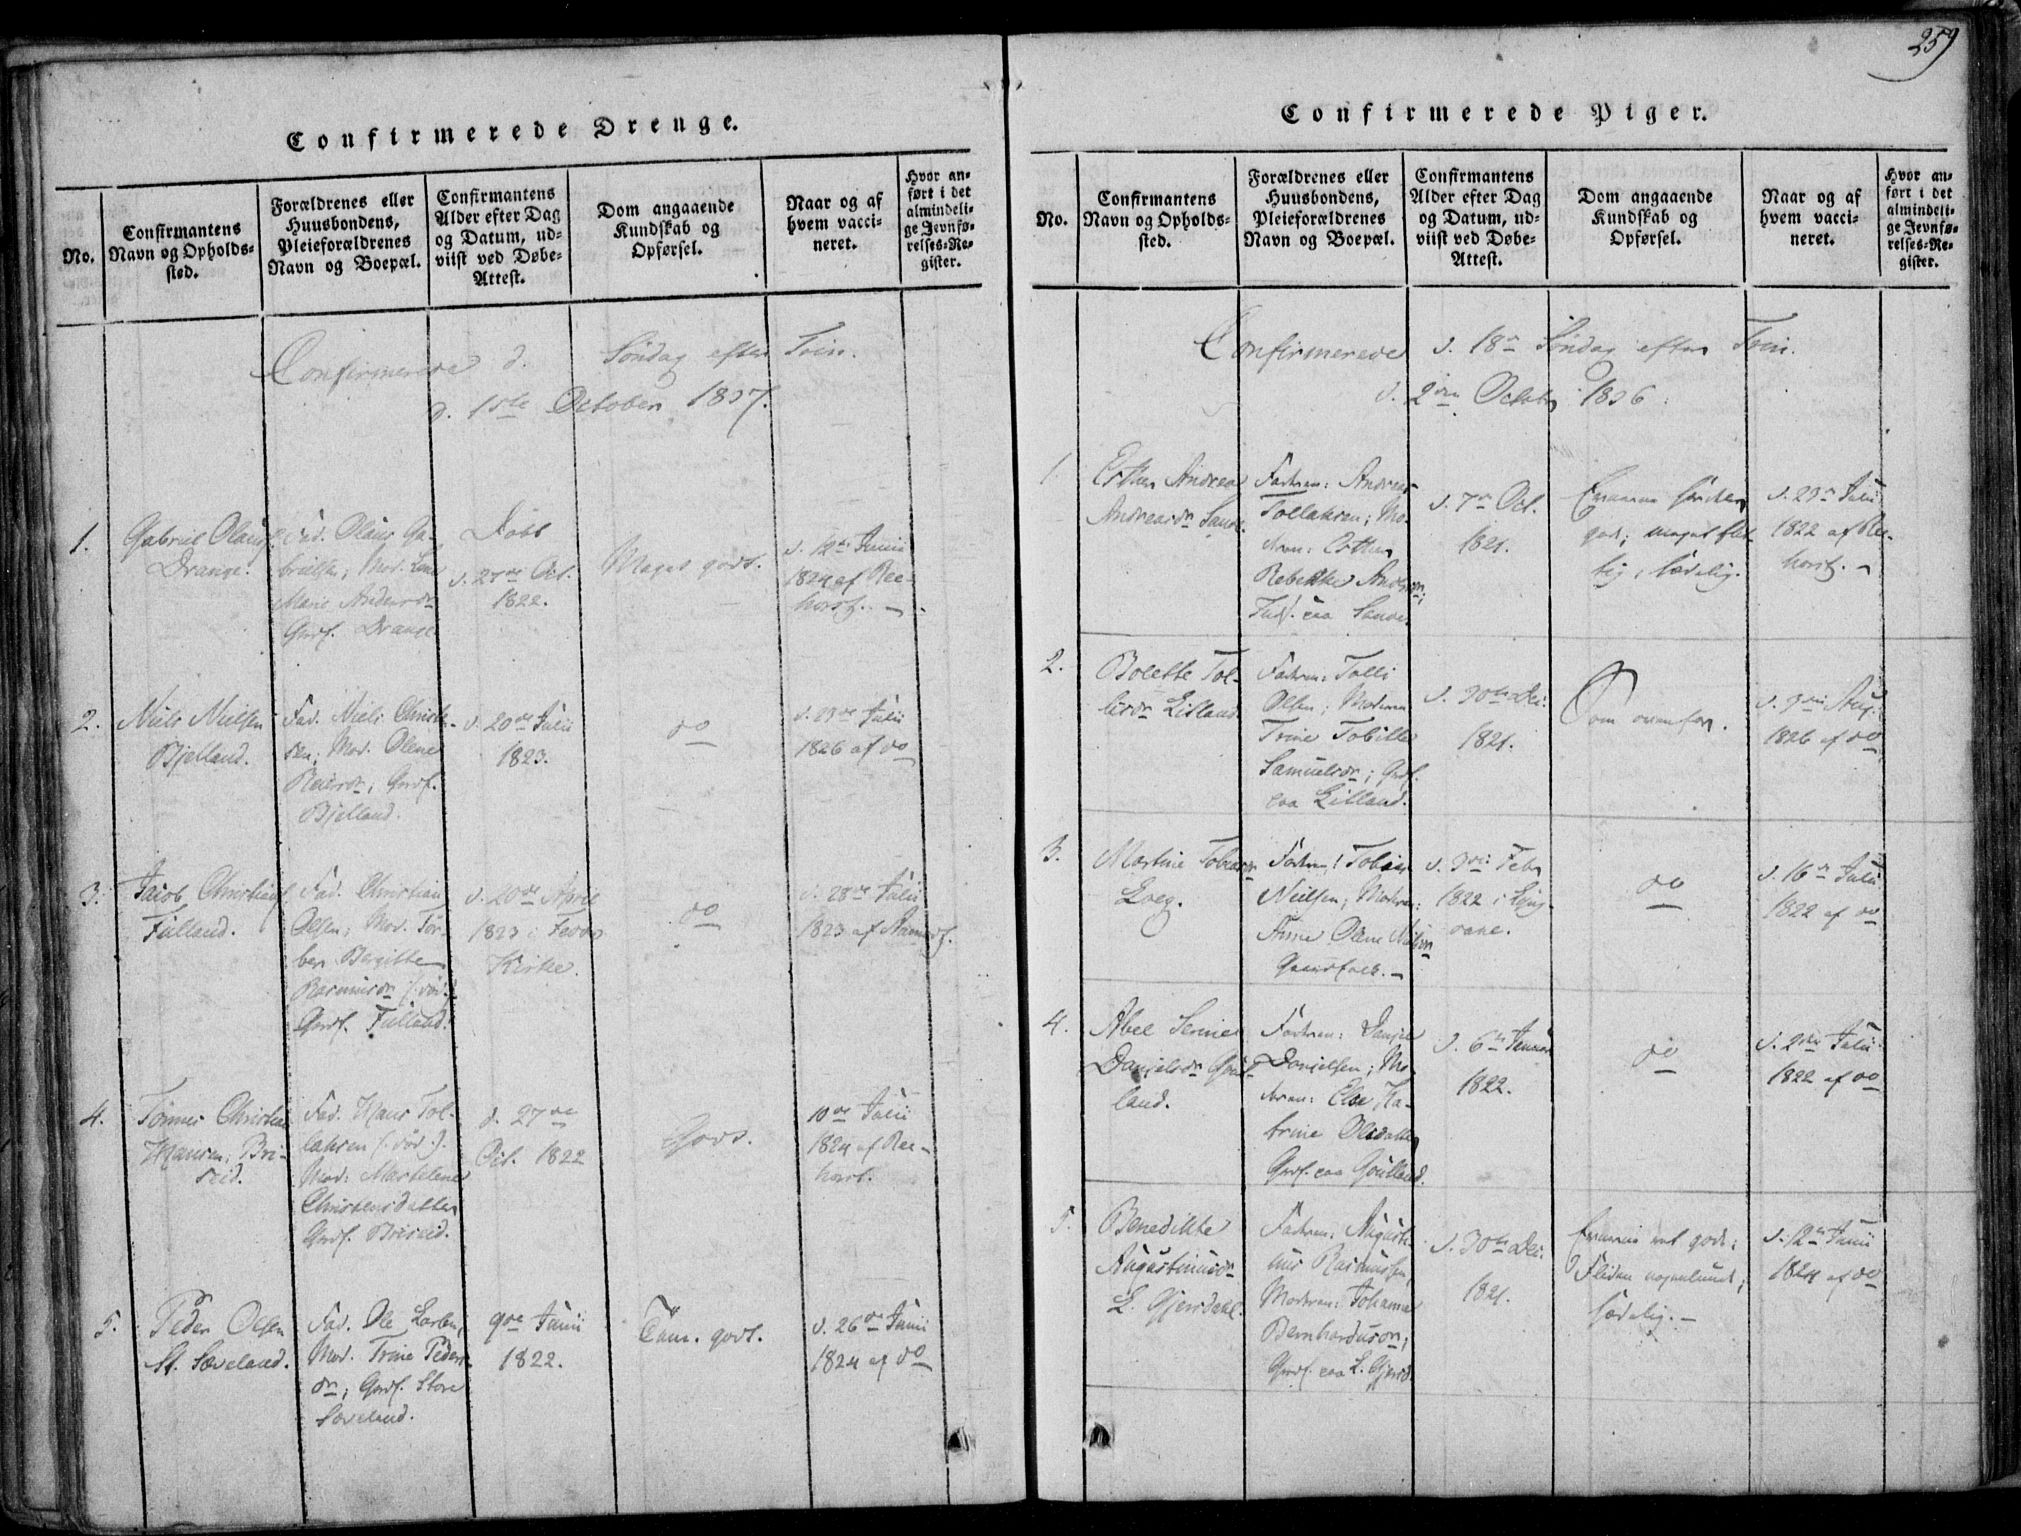 259
Confirmerede Drenge.
No.
Confirmantens
Navn og Opholds=
sted.
Forældrenes eller
Huusbondens,
Pleieforældrenes
Navn og Boepæl.
Confirmantens
Alder efter Dag
og Datum, ud=
viist ved Døbe=
Attest.
Dom angaaende
Kundskab og
Opførsel.
Naar og af
hvem vacci=
neret.
Hvor an=
ført i det
almindeli=
ge Jevnfø=
relses=Re=
gister.
Confirmerede d. Søndag efter Trin.
d. 1ste October 1837.
1.
Gabriel Olaus.
Drange.
Fad. Olaus Ga-
brielsen; Mod. Lene
Marie Andersdr
Gmdf. Drange.
Døbt
d. 27de Oct.
1822.
Meget godt.
d. 12te Junii
1824 af Ree-
horst. -
2.
Niels Nielsen
Bjelland.
Fad. Niels Christen-
sen; Mod. Olene
Reiersdr; Gmdf.
Bjelland.
d. 20de Julii
1823.
do
d. 23de Julii
1826 af do
3.
Jacob Christians.
Fulland.
Fad. Christian
Olsen; Mod. Tor-
ber Birgitte
Rasmusdr (: død :)
Gmdf. Fulland.
d. 20de April
1823 i Fedde
Kirke.
do
d. 28de Julii
1823 af
4.
Tønnes Christian
Hansen, Bri-
seid.
Fad. Hans Tol-
laksen (: død :).
Mod: Martelene
Christensdatter
Gmdf. Briseid.
d. 27de
Oct. 1822
Godt.
10de Julii
1824 af Ree-
horst.
5.
Peder Olsen
St. Sæveland.
Fad. Ole Larsen,
Mod. Trine Peders-
dr; Gmdf. Store
Sæveland.
9de Junii
1822.
Tem. godt.
d. 26de Junii
1824 af do
Confirmerede Piger.
No.
Confirmantens
Navn og Opholds=
sted.
Forældrenes eller
Huusbondens,
Pleieforældrenes
Navn og Boepæl.
Confirmantens
Alder efter Dag
og Datum, ud=
viist ved Døbe=
Attest.
Dom angaaende
Kundskab og
Opførsel.
Naar og af
hvem vacci=
neret.
Hvor an=
ført i det
almindeli=
ge Jevnfø=
relses=Re=
gister.
Confirmerede d. 18de Søndag efter Trin.
d. 2den Octobr 1836.
1.
Esther Andrea
Andreasdr Sande.
Faderen: Andreas
Tollaksen; Mo-
deren: Esther
Rebekka Andersdr;
Indf. paa Sande.
d. 7de Oct.
1821.
god; meget flit-
tig, sædelig.
d. 23de Julii
1822 af Ree-
horst. -
2.
Bolette Tol-
lisdr Lilland.
Faderen: Tolli
Olsen; Moderen
Trine Tobitte
Samuelsdr; Gmdf.
paa Lilland.
d. 30te Dec.
1821.
Som ovenfor.
d. 3die Aug.
1826 af do
3.
Martine Tobiasdr
Loeg.
Faderen: Tobias
Nielsen; Moderen:
Anne Olene Nielsdr
Gaardfolk. -
d. 3die Febr
1822 i Lyng-
dahl.
do
d. 16de Julii
1822 af do
4.
Abel Serine
Danjelsdr Gaul-
land.
Faderen: Danjel
Danjelsen; Mo-
deren: Else Ka-
trine Olsdatter
Gmdf. paa Gaulland.
d. 6te Januar
1822.
do
d. 2den Julii
1822 af do
5.
Benedikte
Augustinusdr
L. Gjersdahl.
Faderen: Augusti-
nus Rasmussen,
Moderen: Johanne
Bernhardusdr;
Gmdf. paa L. Gjersd.
d. 30te Dec.
1821.
ret god;
Fliden nogenlunde;
sædelig. -
d. 12te Junii
1824 af do